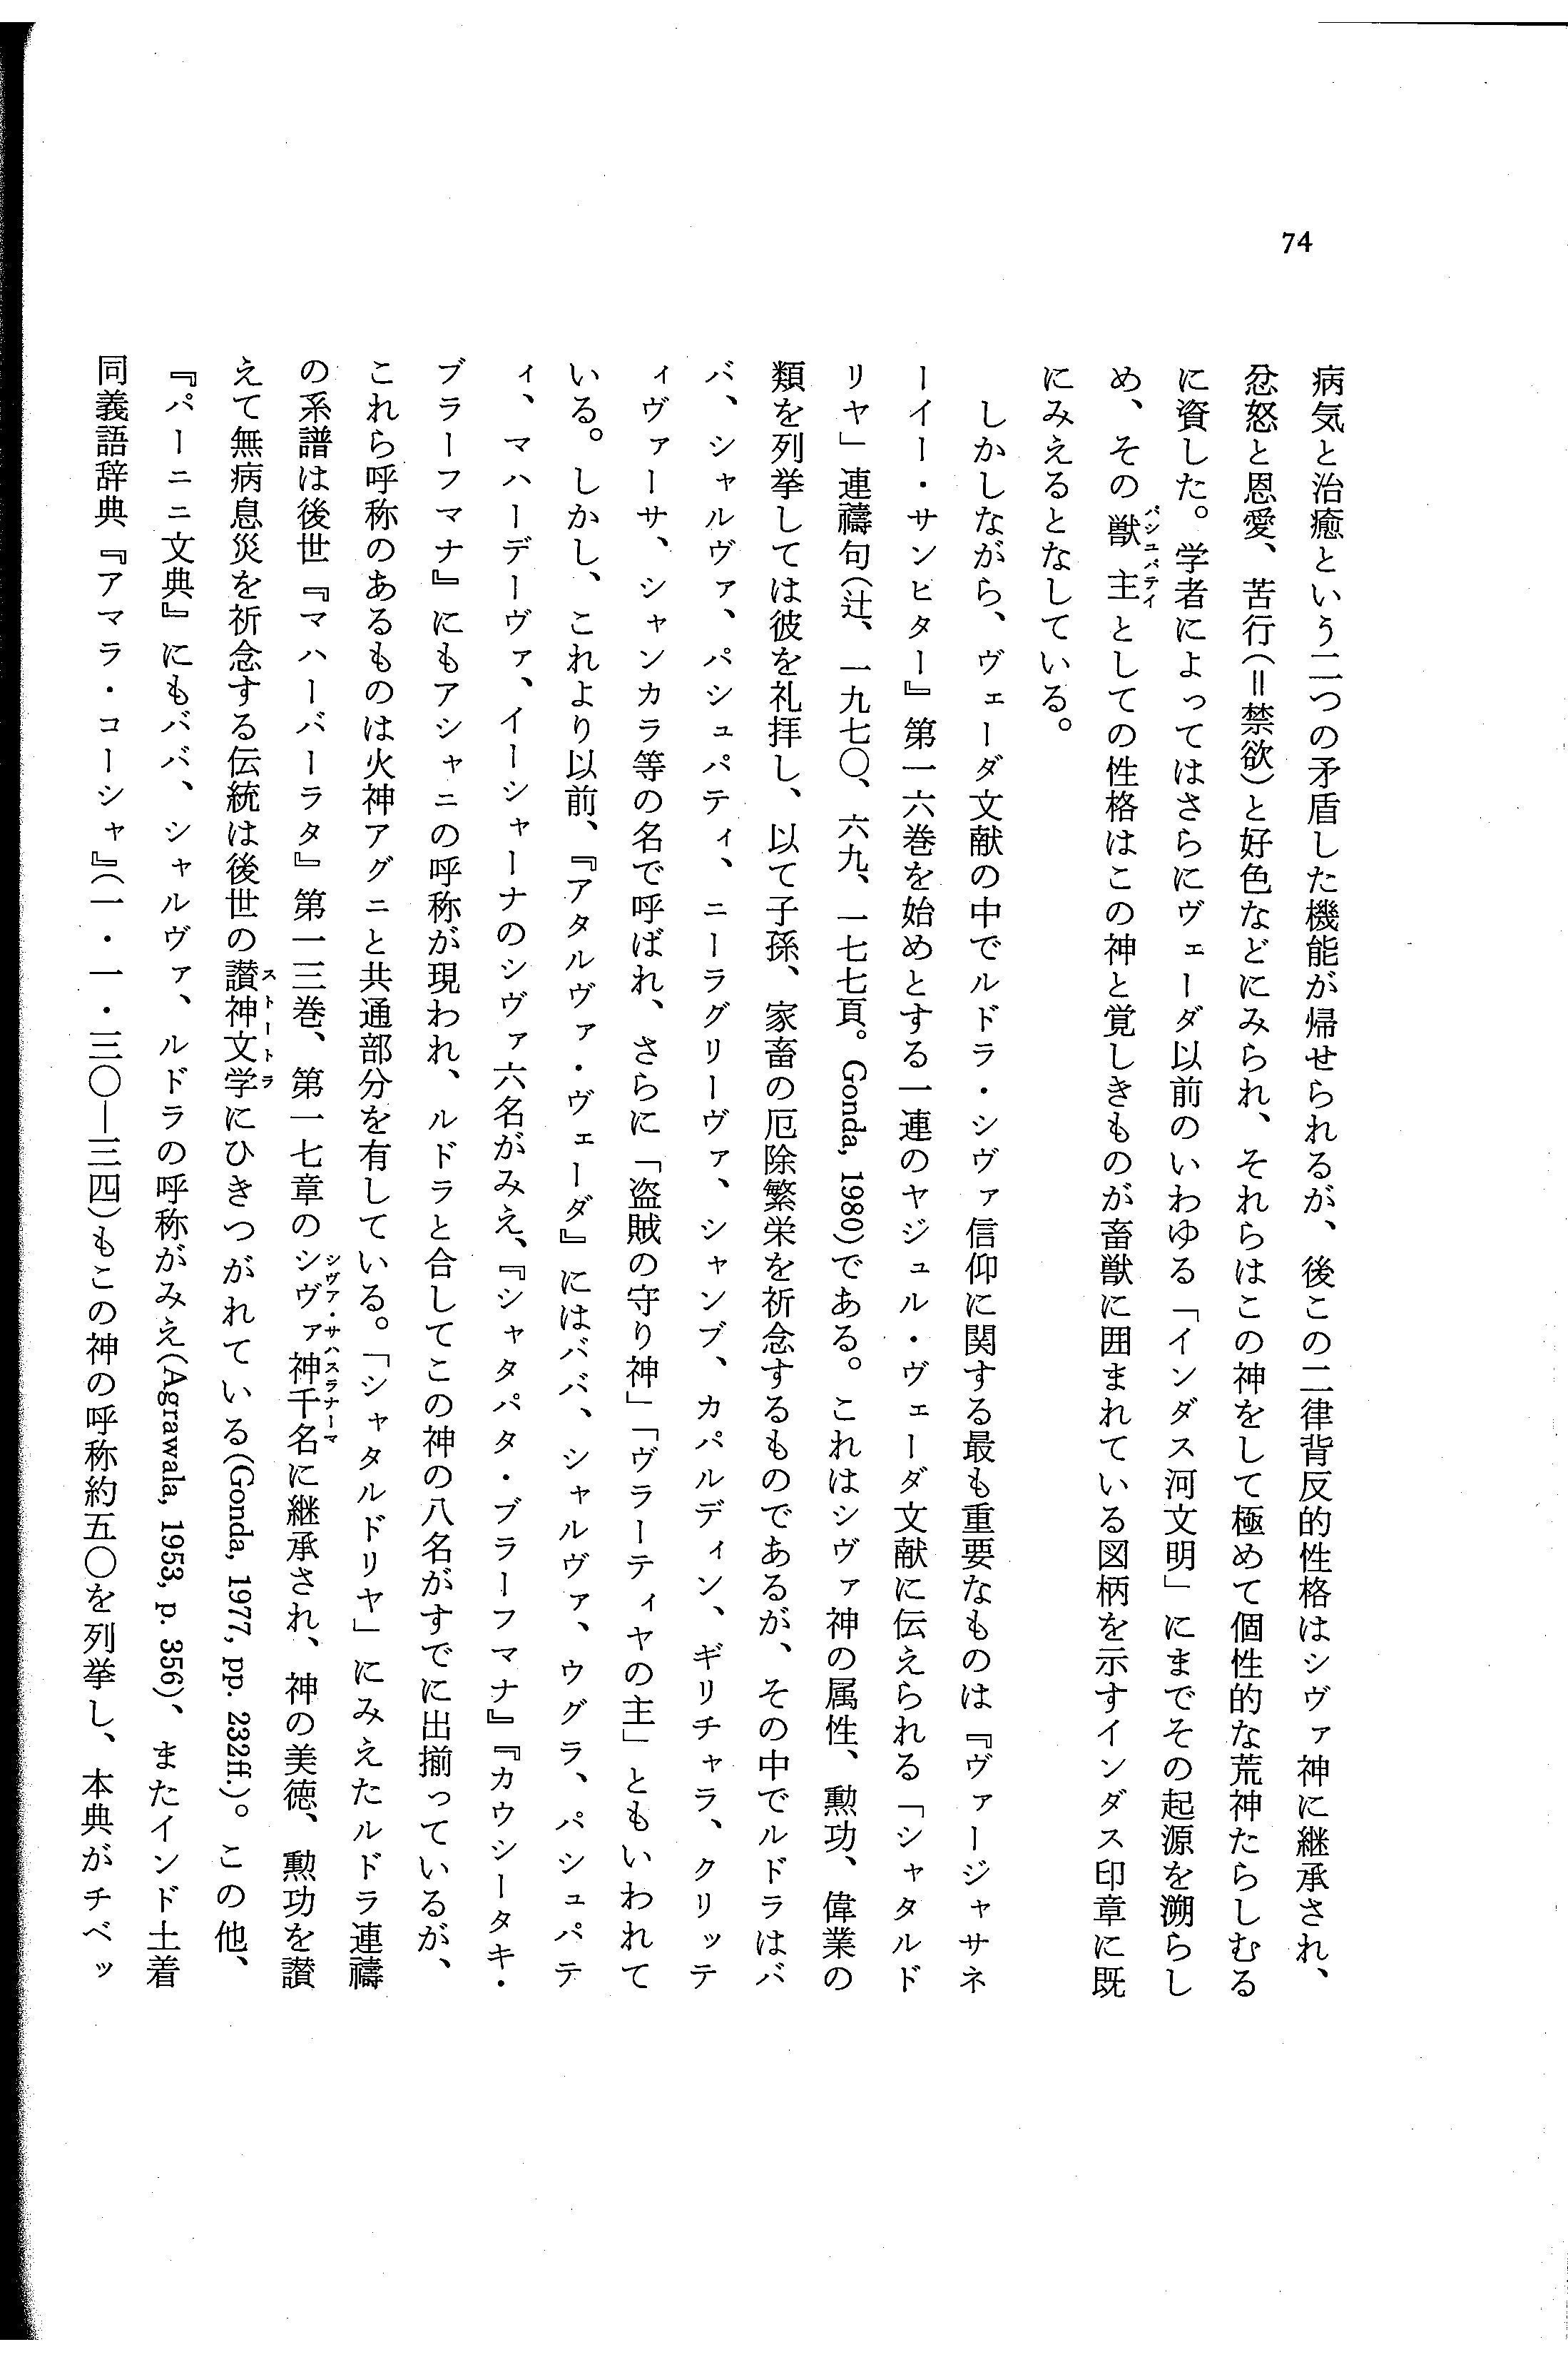 74
病気と治癒という二つの矛盾した機能が帰せられるが、後この二律背反的性格はシヴァ神に継承され、
忿怒と恩愛、苦行(=禁欲)と好色などにみられ、それらはこの神をして極めて個性的な荒神たらしむる
に資した。学者によってはさらにヴェーダ以前のいわゆる「インダス河文明」にまでその起源を溯らし
め、その獣主パシュパティとしての性格はこの神と覚しきものが畜獣に囲まれている図柄を示すインダス印章に既
にみえるとなしている。
しかしながら、ヴェーダ文献の中でルドラ・シヴァ信仰に関する最も重要なものは『ヴァージャサネ
ーイー・サンヒター』第一六巻を始めとする一連のヤジュル・ヴェーダ文献に伝えられる「シャタルド
リヤ」連禱句(辻、一九七〇、六九、一七七頁。Gonda, 1980)である。これはシヴァ神の属性、勲功、偉業の
類を列挙しては彼を礼拝し、以て子孫、家畜の厄除繁栄を祈念するものであるが、その中でルドラはバ
バ、シャルヴァ、パシュパティ、ニーラグリーヴァ、シャンブ、カパルディン、ギリチャラ、クリッテ
ィヴァーサ、シャンカラ等の名で呼ばれ、さらに「盗賊の守り神」「ヴラーティヤの主」ともいわれて
いる。しかし、これより以前、『アタルヴァ・ヴェーダ』にはババ、シャルヴァ、ウグラ、パシュパテ
ィ、マハーデーヴァ、イーシャーナのシヴァ六名がみえ、『シャタパタ・ブラーフマナ』『カウシータキ・
ブラーフマナ』にもアシャニの呼称が現われ、ルドラと合してこの神の八名がすでに出揃っているが、
これら呼称のあるものは火神アグニと共通部分を有している。「シャタルドリヤ」にみえたルドラ連禱
の系譜は後世『マハーバーラタ』第一三巻、第一七章のシヴァ神千名シヴァ・サハスラナーマに継承され、神の美徳、勲功を讃
えて無病息災を祈念する伝統は後世の讃神文学ストートラにひきつがれている(Gonda, 1977, pp. 232ff.)。この他、
『パーニニ文典』にもババ、シャルヴァ、ルドラの呼称がみえ(Agrawala, 1953, p. 356)、またインド土着
同義語辞典『アマラ・コーシャ』(一・一・三〇―三四)もこの神の呼称約五〇を列挙し、本典がチベッ